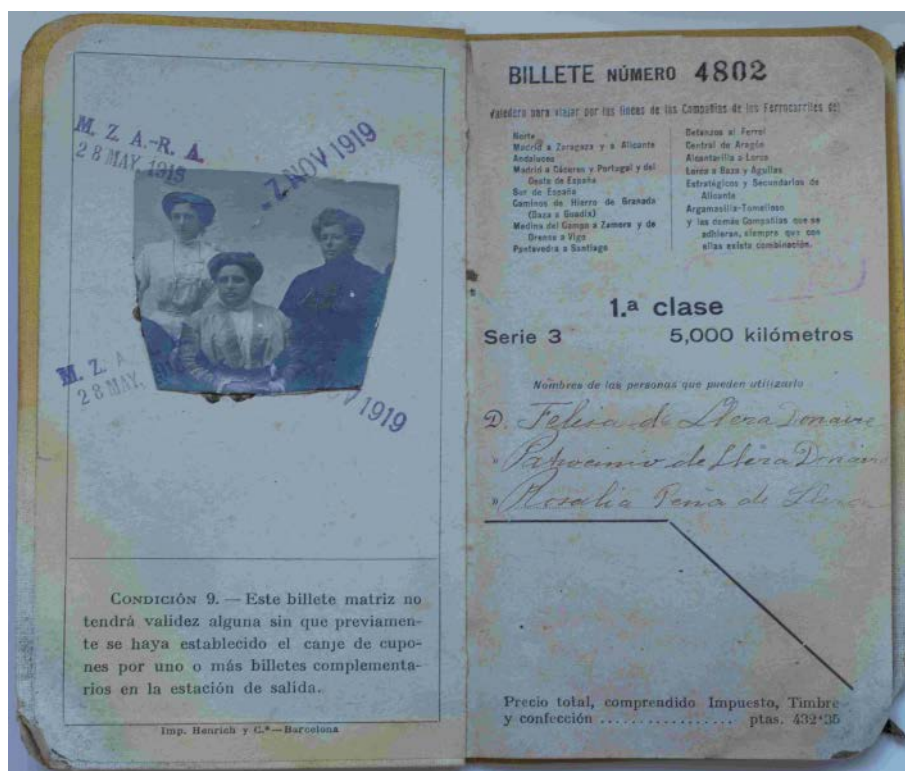 M. Z. A.-R. A.
28 MAY. 1919
NOV 1919
M. Z. A
28 MAY.
1919
CONDICIÓN 9. — Este billete matriz no
tendrá validez alguna sin que previamen-
te se haya establecido el canje de cupo-
nes por uno o más billetes complementa-
rios en la estación de salida.
Imp. Henrich y C.ª—Barcelona
BILLETE NÚMERO 4802
Valedero para viajar por las líneas de las Compañías de los Ferrocarriles del
Norte
Madrid a Zaragoza y a Alicante
Andaluces
Madrid a Cáceres y Portugal y del
Oeste de España
Sur de España
Caminos de Hierro de Granada
(Baza a Guadix)
Medina del Campo a Zamora y de
Orense a Vigo
Pontevedra a Santiago
Betanzos al Ferrol
Central de Aragón
Alcantarilla a Lorca
Lorca a Baza y Aguilas
Estratégicos y Secundarios de
Alicante
Argamasilla-Tomelloso
y las demás Compañías que se
adhieran, siempre que con
ellas exista combinación.
1.ª clase
Serie 3 5,000 kilómetros
Nombres de las personas que pueden utilizarlo
D. Felisa de Llera Donaire
" Patrocinio de Llera Donaire
" Rosalia Peña de Llera
Precio total, comprendido Impuesto, Timbre
y confección ................. ptas. 432'35